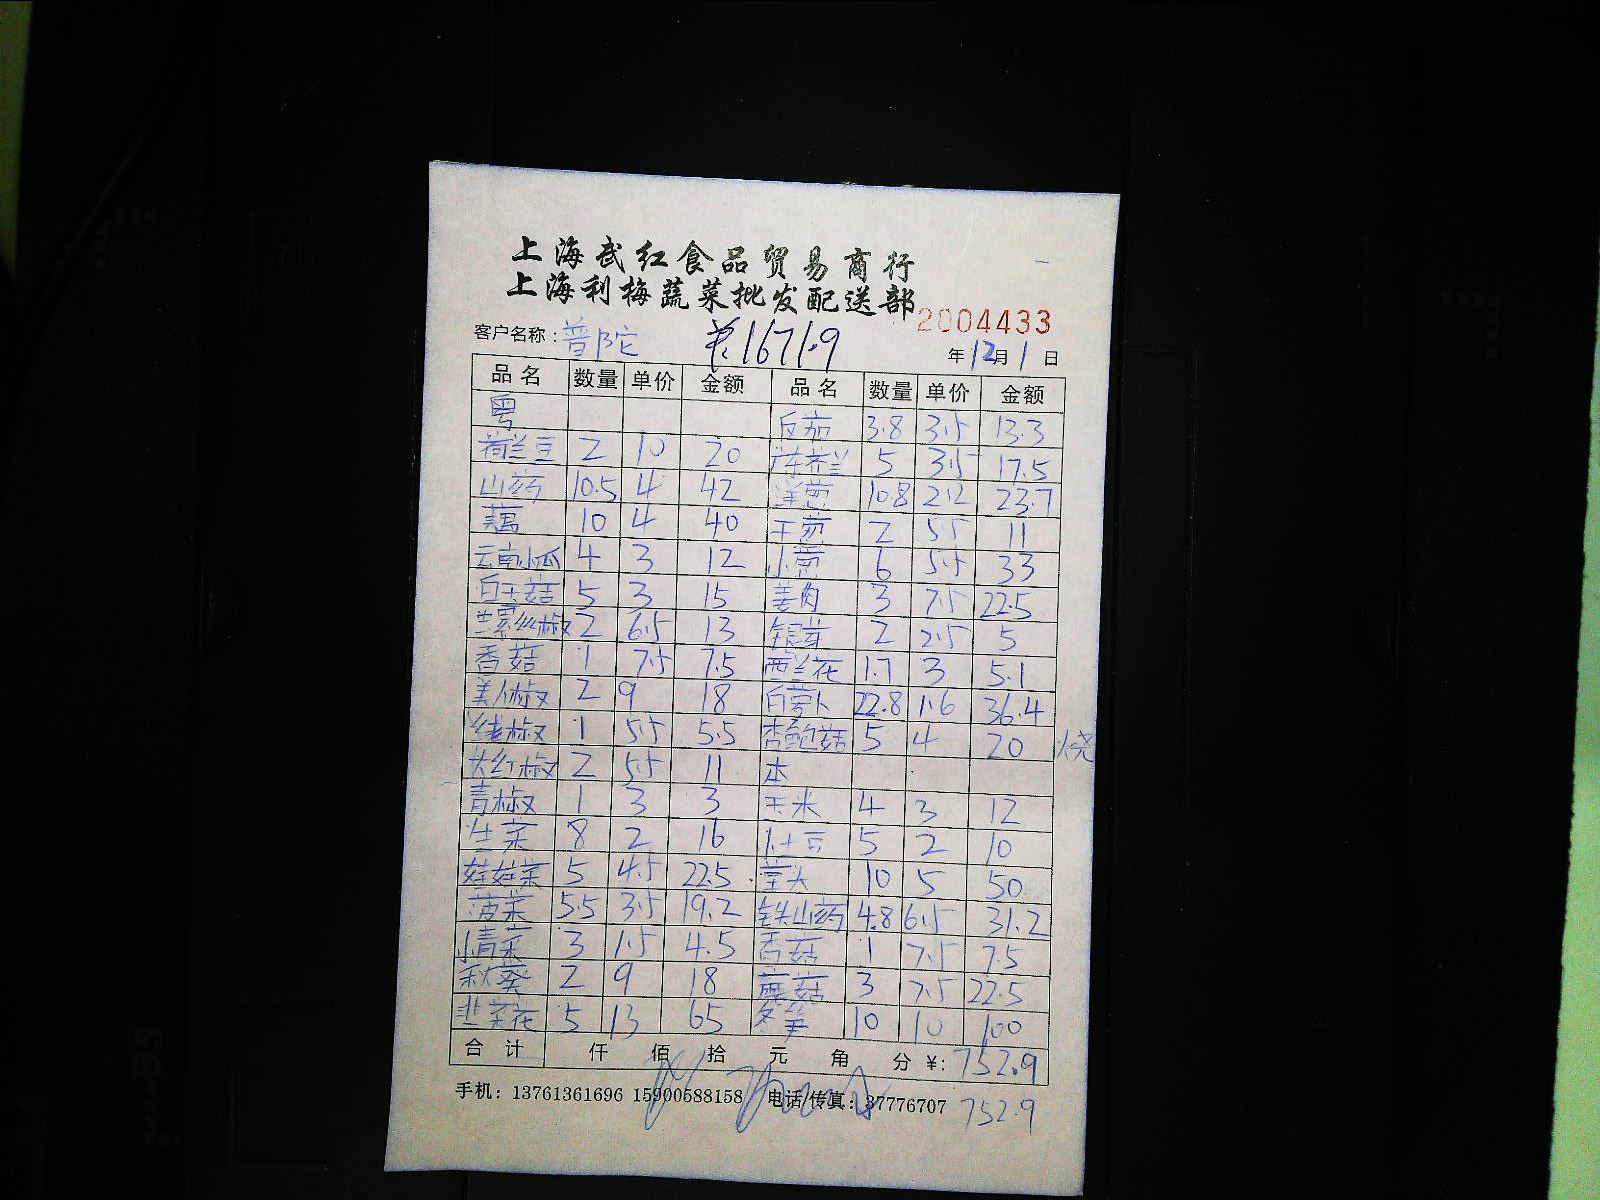 上海武红食品贸易商行
上海利梅蔬菜批发配送部
2004433
客户名称：普陀 ¥:1671.9 年12月1日
品名 数量 单价 金额 品名 数量 单价 金额
粤 反茄 3.8 3.5 13.3
荷兰豆 2 10 20 广东芥兰 5 3.5 17.5
山药 10.5 4 42 洋葱 10.8 2.2 23.7
藕 10 4 40 干葱 2 5.5 11
云南小瓜 4 3 12 小葱 6 5.5 33
白玉菇 5 3 15 姜肉 3 7.5 22.5
螺丝椒 2 6.5 13 银芽 2 2.5 5
香菇 1 7.5 7.5 西兰花 1.7 3 5.1
美人椒 2 9 18 白萝卜 22.8 1.6 36.4
线椒 1 5.5 5.5 杏鲍菇 5 4 20 烧
大红椒 2 5.5 11 本
青椒 1 3 3 玉米 4 3 12
生菜 8 2 16 土豆 5 2 10
娃娃菜 5 4.5 22.5 10 5 50
菠菜 5.5 3.5 19.2 铁山药 4.8 6.5 31.2
小青菜 3 1.5 4.5 香菇 1 7.5 7.5
秋葵 2 9 18 蘑菇 3 7.5 22.5
韭菜花 5 13 65 冬笋 10 10 100
合计 仟 佰 拾 元 角 分 ¥: 752.9
手机：13761361696 15900588158 电话/传真：37776707 752.9